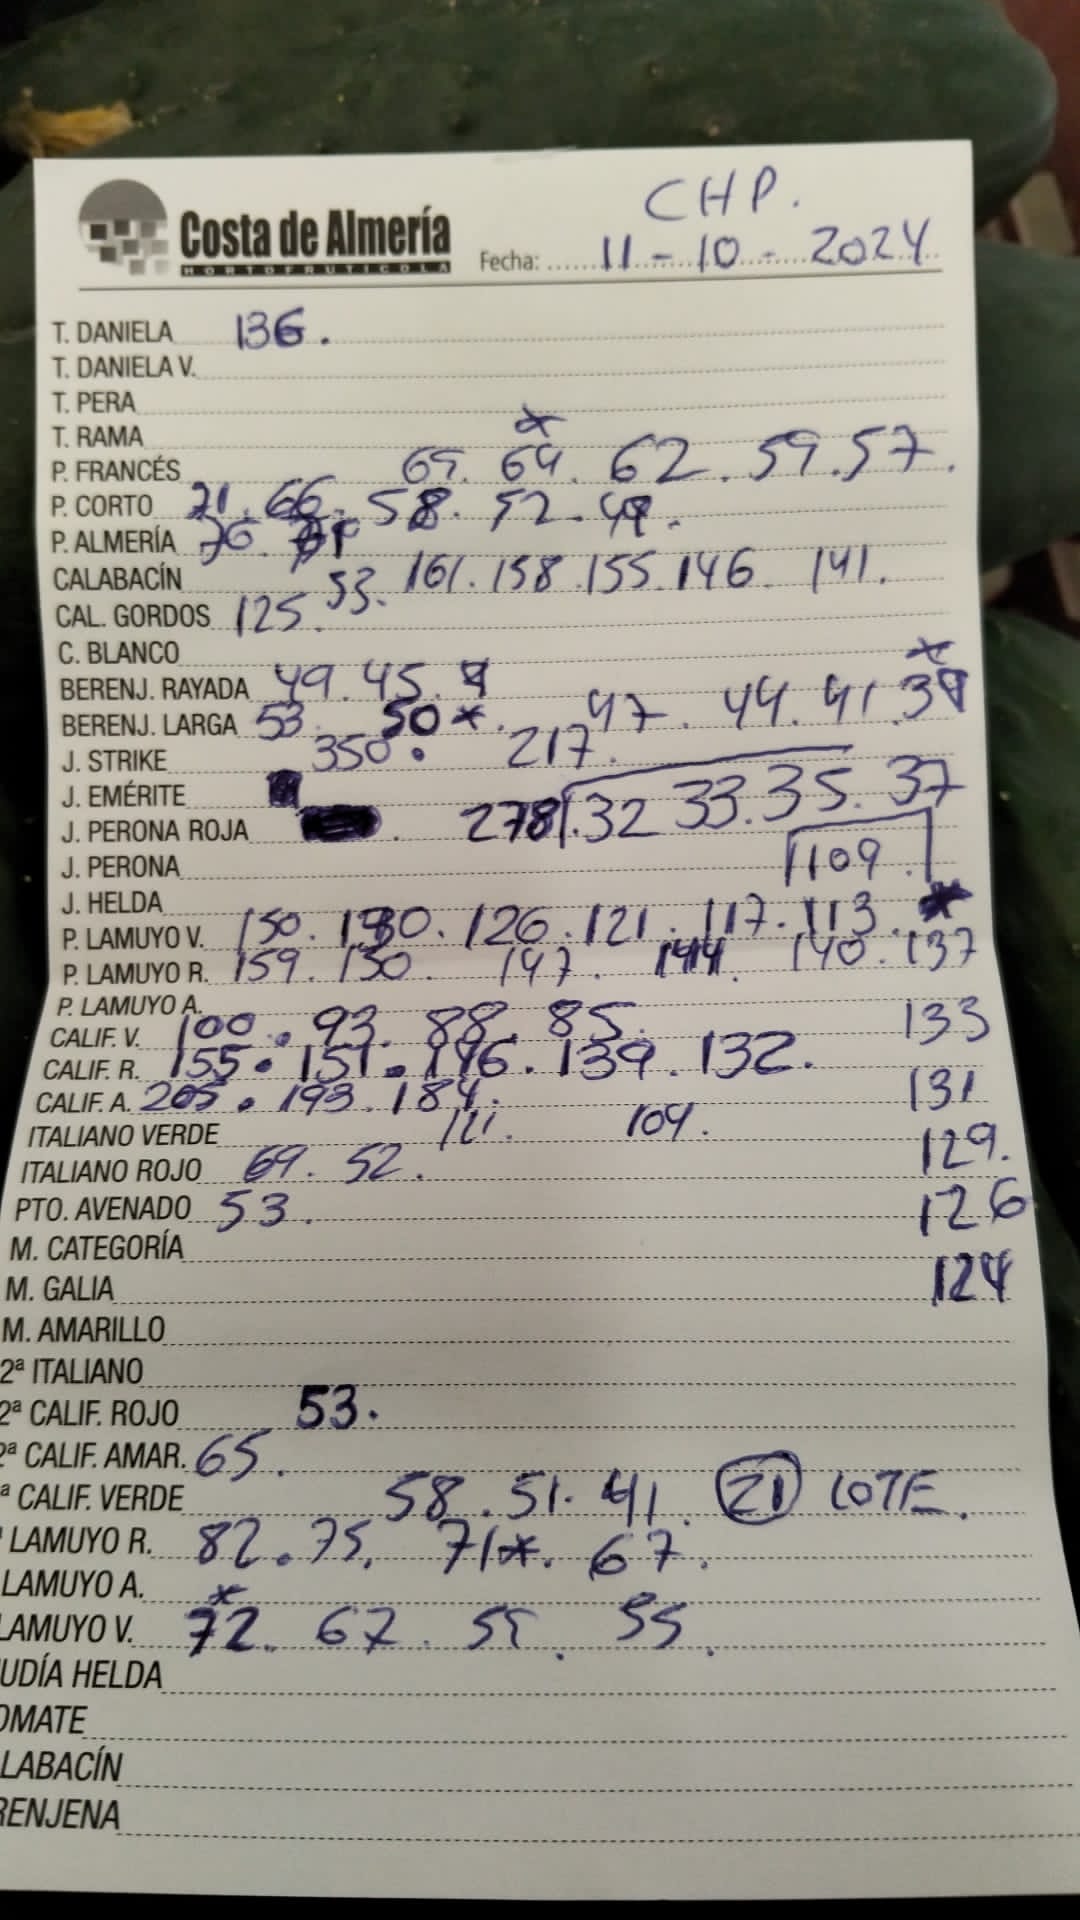 CHP.
Costa de Almería
HORTOFRUTICOLA
Fecha: 11-10-2024
T. DANIELA 136.
T. DANIELA V.
T. PERA
T. RAMA *
P. FRANCÉS 65. 64. 62. 59. 57.
P. CORTO 71. 66. 58. 52. 48.
P. ALMERÍA 76.
CALABACÍN 53. 161. 158. 155. 146. 141.
CAL. GORDOS 125.
C. BLANCO *
BERENJ. RAYADA 49. 45. 47. 44. 41. 39
BERENJ. LARGA 53. 50*.
J. STRIKE 350. 217.
J. EMÉRITE
J. PERONA ROJA 278. 32 33. 35. 37
J. PERONA 109.
J. HELDA
P. LAMUYO V. 150. 130. 126. 121. 117. 113. *
P. LAMUYO R. 159. 150. 147. 144. 140. 137
P. LAMUYO A. 133
CALIF. V. 100. 93. 88. 85.
CALIF. R. 155. 151. 146. 139. 132.
CALIF. A. 205. 193. 184. 131
ITALIANO VERDE 121. 109. 129.
ITALIANO ROJO 69. 52.
PTO. AVENADO 53. 126
M. CATEGORÍA
M. GALIA 124
M. AMARILLO
2ª ITALIANO
2ª CALIF. ROJO 53.
2ª CALIF. AMAR. 65.
ª CALIF. VERDE 58. 51. 41. 21 LOTE.
LAMUYO R. 82. 75. 71*. 67.
LAMUYO A. *
LAMUYO V. 72. 67. 59. 55.
UDÍA HELDA
OMATE
LABACÍN
RENJENA